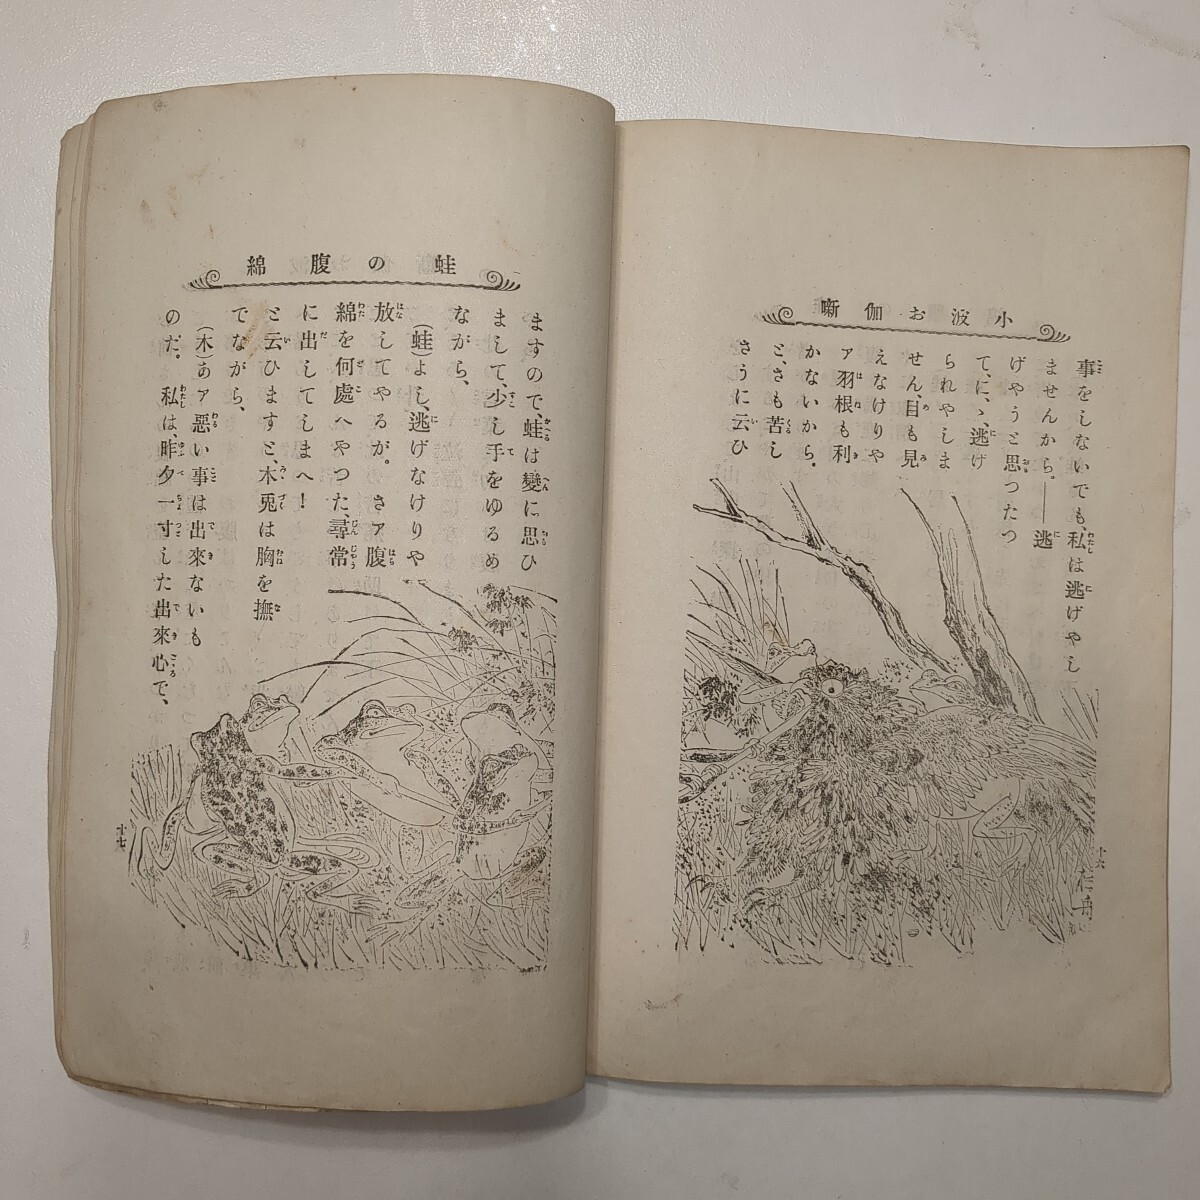 小波お伽噺
事をしないでも、私は逃げやし
ませんから。――逃
げやうと思つたつ
て、に、逃げ
られやしま
せん、目も見
えなけりや
ア羽根も利
かないから。
と、さも苦し
さうに云ひ
十六
蛙の腹綿
ますので、蛙は變に思ひ
まして、少し手をゆるめ
ながら、
(蛙)よし、逃げなけりや
放してやるが。さア腹
綿を何處へやつた、尋常
に出してしまへ!
と云ひますと、木兎は胸を撫
でながら、
(木)あア悪い事は出來ないも
のだ。私は、昨夕一寸した出來心で、
十七